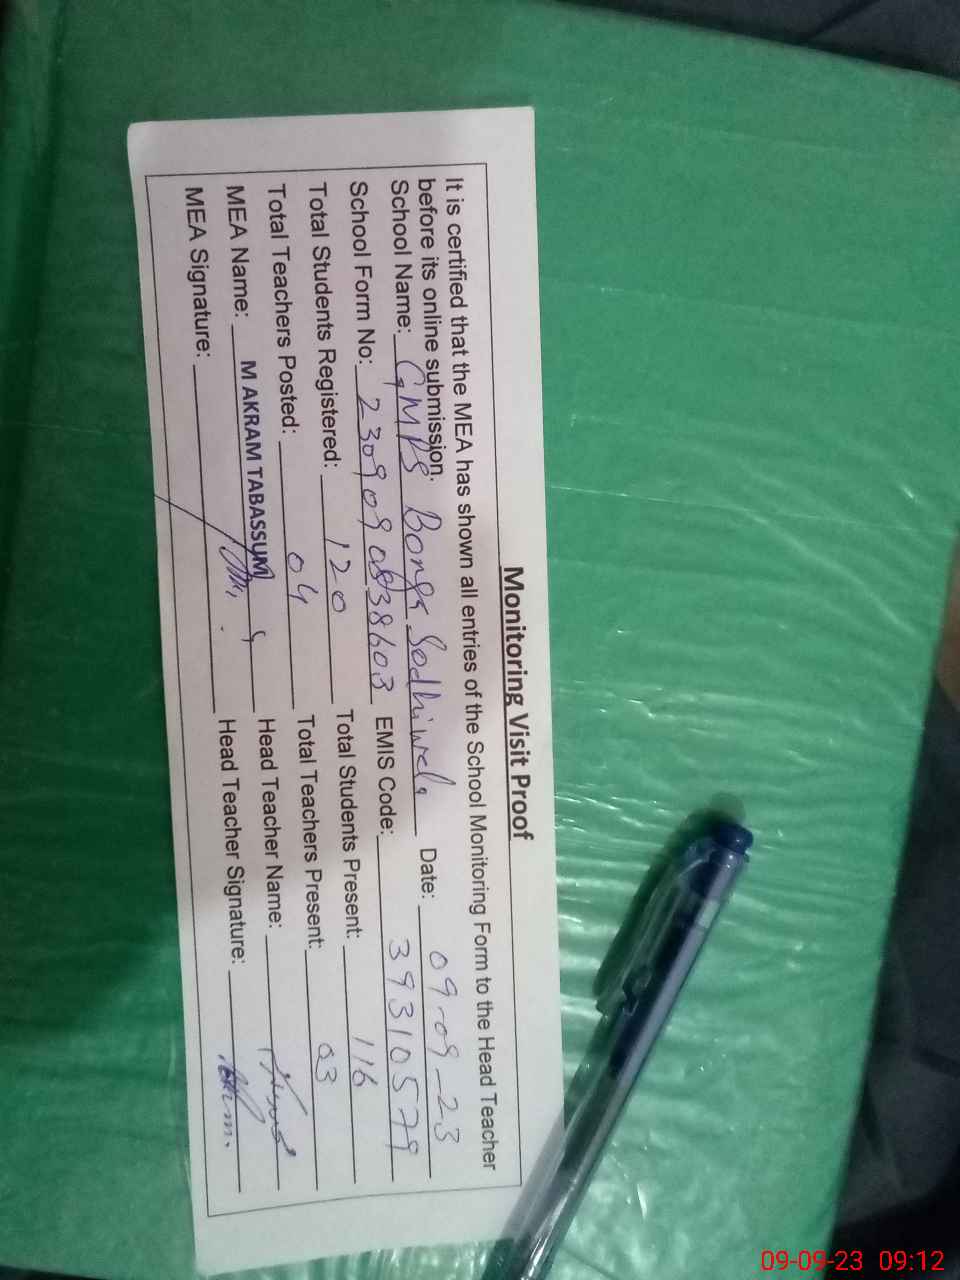 Monitoring Visit Proof
It is certified that the MEA has shown all entries of the School Monitoring Form to the Head Teacher
before its online submission.
School Name: GMPS Bonga Sodhiwala Date: 09-09-23
School Form No: EMIS Code: 39310579
Total Students Registered: 120 Total Students Present: 116
Total Teachers Posted: 04 Total Teachers Present: 03
MEA Name: M AKRAM TABASSUM Head Teacher Name:
MEA Signature: Head Teacher Signature:
09-09-23 09:12